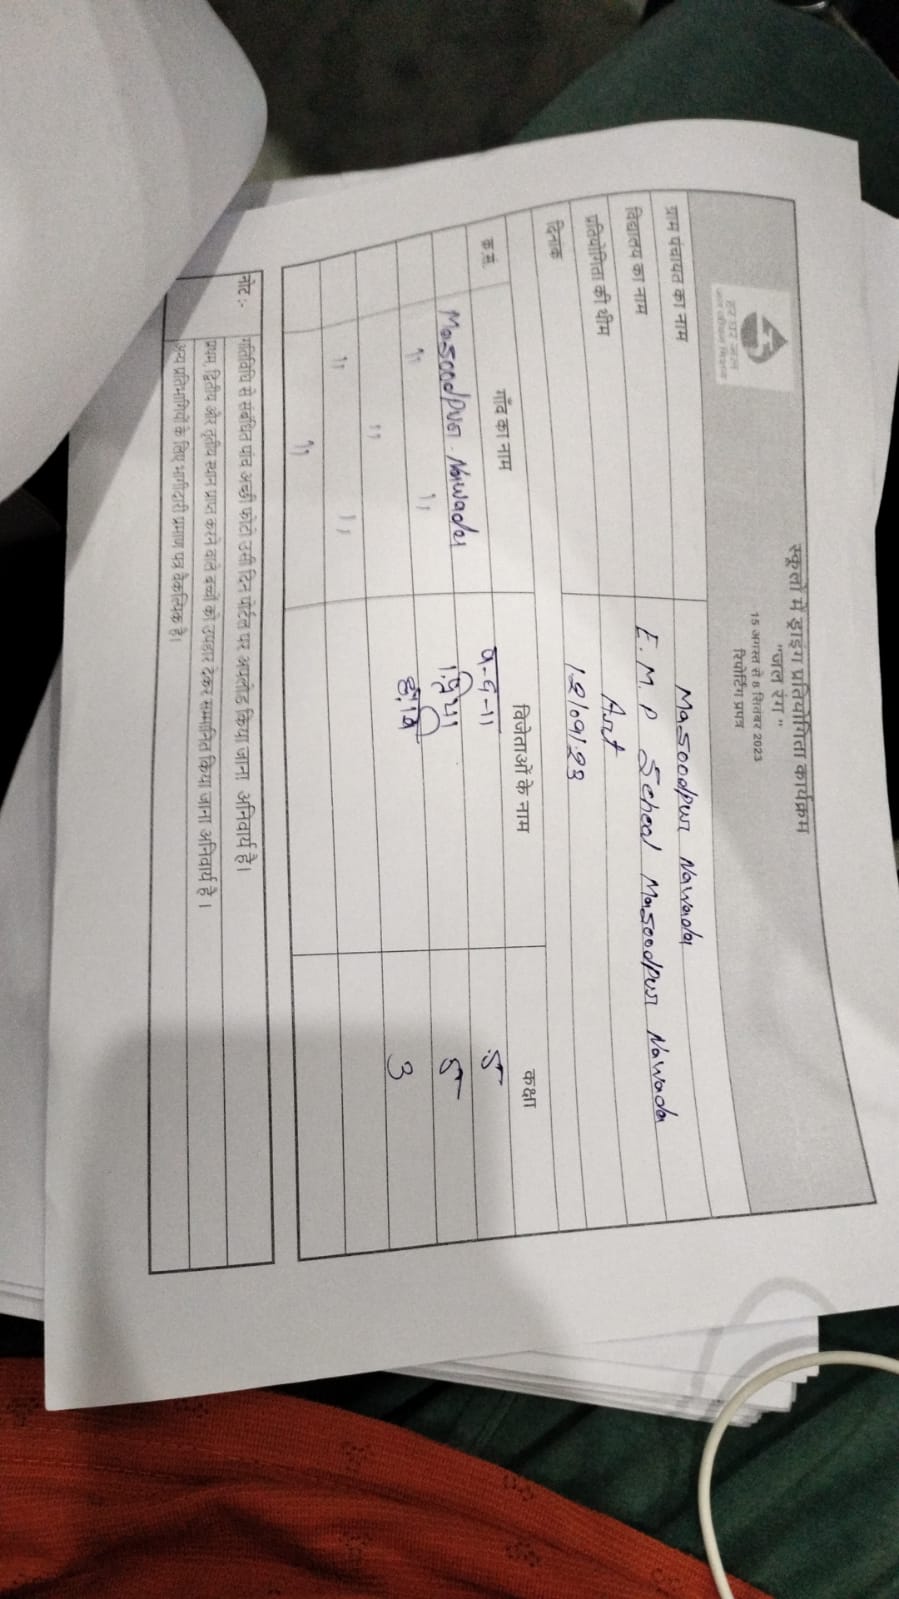 स्कूलों में ड्राइंग प्रतियोगिता कार्यक्रम
"जल रंग"
15 अगस्त से 8 सितंबर 2023
रिपोर्टिंग प्रपत्र
हर घर जल
जल जीवन मिशन
ग्राम पंचायत का नाम Masoodpur Nawada
विद्यालय का नाम E. M. P School Masoodpur Nawada
प्रतियोगिता की थीम Art
दिनांक 12/09/23
क्र.सं. गाँव का नाम विजेताओं के नाम कक्षा
5
Masoodpur Nawada 5
" " 3
"
" "
"
नोट :- गतिविधि से संबंधित पांच अच्छी फोटो उसी दिन पोर्टल पर अपलोड किया जाना अनिवार्य है।
प्रथम, द्वितीय और तृतीय स्थान प्राप्त करने वाले बच्चों को उपहार देकर सम्मानित किया जाना अनिवार्य है ।
अन्य प्रतिभागियों के लिए भागीदारी प्रमाण पत्र वैकल्पिक है।